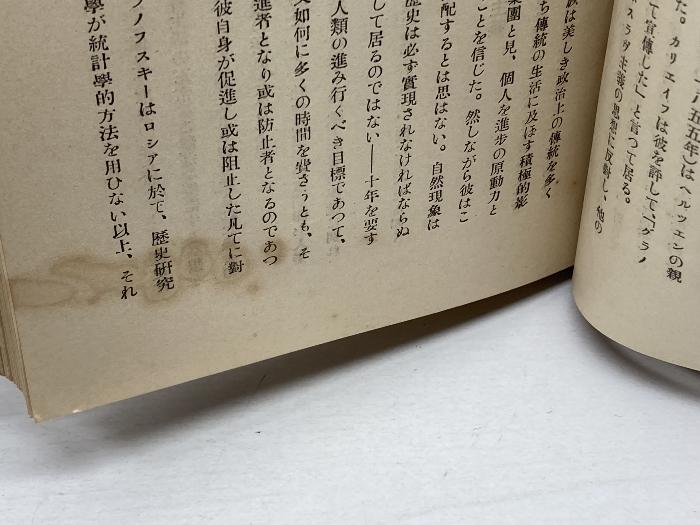 五五年)は ヘルツェンの親
た。カリエイフは彼を評して、「グラノ
て宣傳した」と言つて居る。
スラヴ主義の思想に反對し、他の
族は美しき政治上の傳統を多く
ち傳統の生活に及ぼす積極的影
集團と見、個人を進步の原動力と
ことを信じた。然しながら彼はこ
配するとは思はない。自然現象は
歷史は必ず實現されなければならぬ
して居るのではない——十年を要す
人類の進み行くべき目標であつて、
如何に多くの時間を費さうとも、そ
進者となり或は防止者となるのであつ
彼自身が促進し或は阻止した凡てに對
ノフスキーはロシアに於て、歷史硏究
學が統計學的方法を用ひない以上、それ